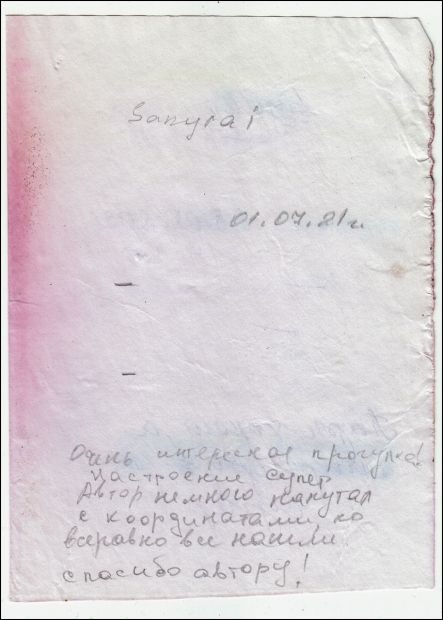 Sanyrai
01.07.21г.
Очень интересная прогулка!
Настроение супер
Автор немного напутал
с координатами, но
всеравно все нашли.
спасибо автору!